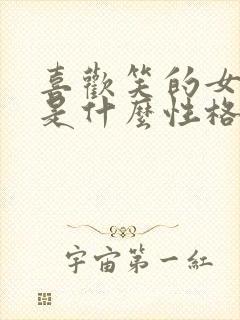 喜歡笑的女
是什麼性格
宇宙第一紅